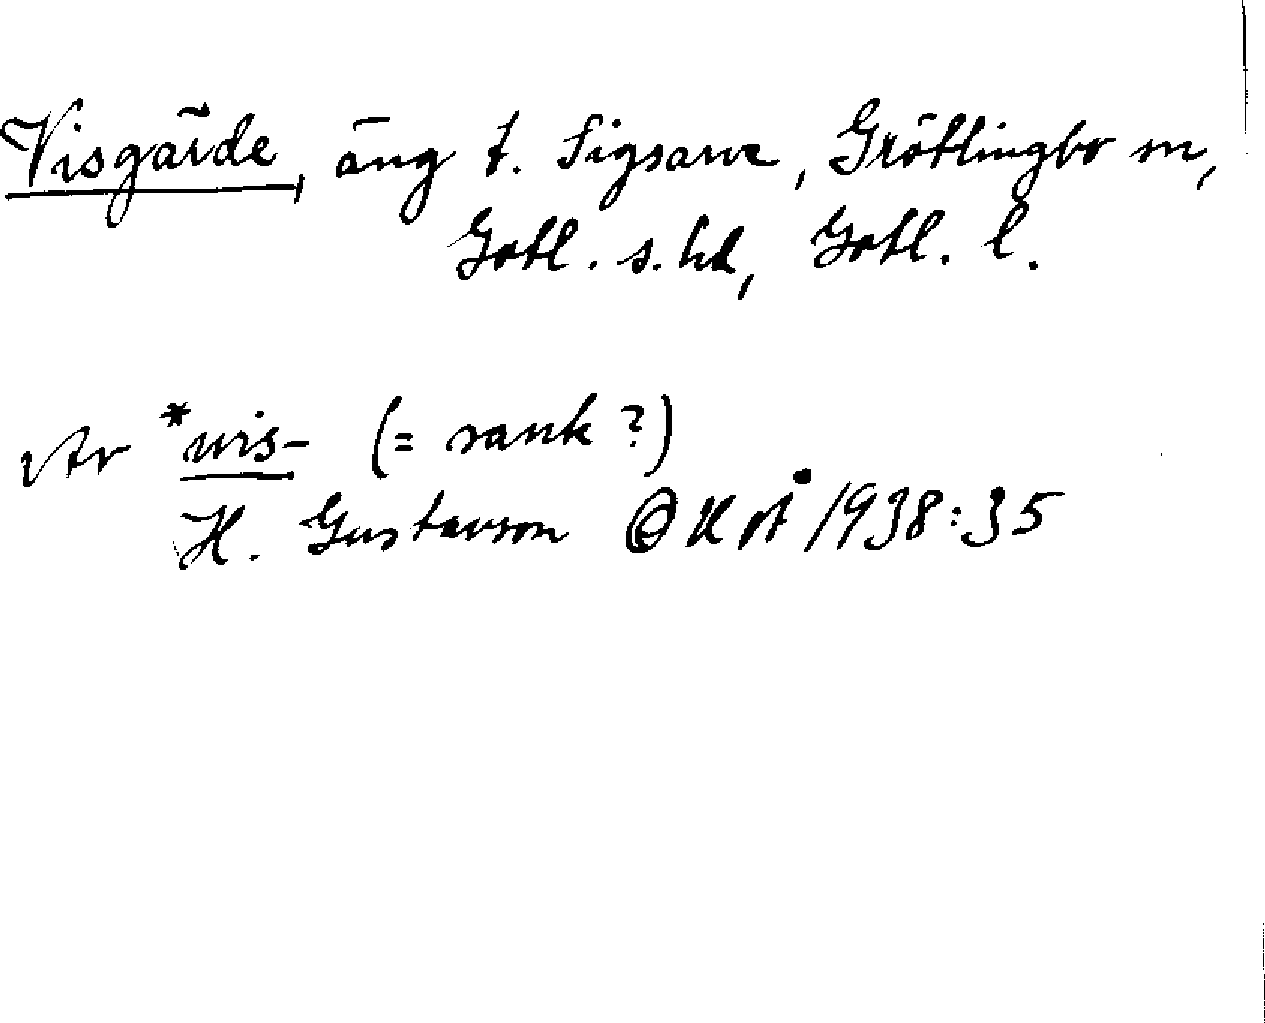 Visgärde, äng t. Sigsarve, Grötlingbo sn,
Gotl. s. hd, Gotl. l.
Av *vis- (= rank ?)
H. Gustavson 1938:35